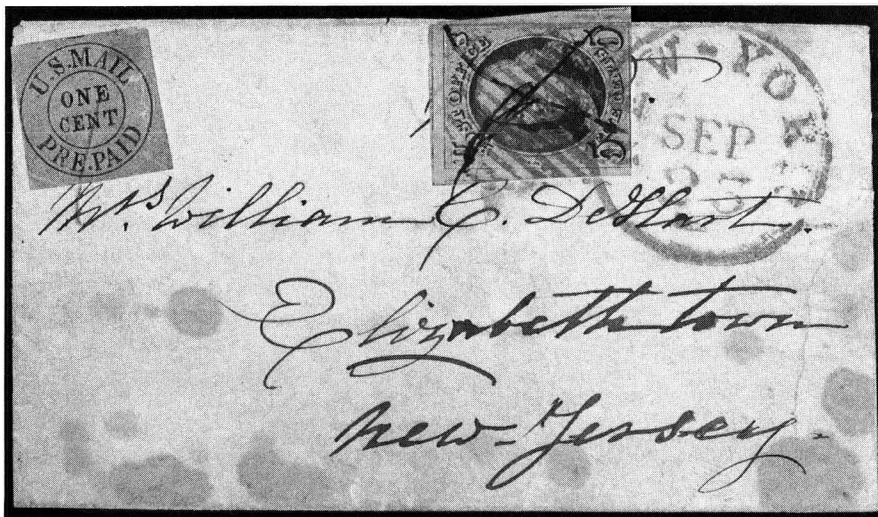 U.S.MAIL
ONE
CENT
PRE-PAID
POST OFFICE
NEW-YORK
SEP
Mrs. William C. DeHart.
Elizabethtown
New-Jersey.